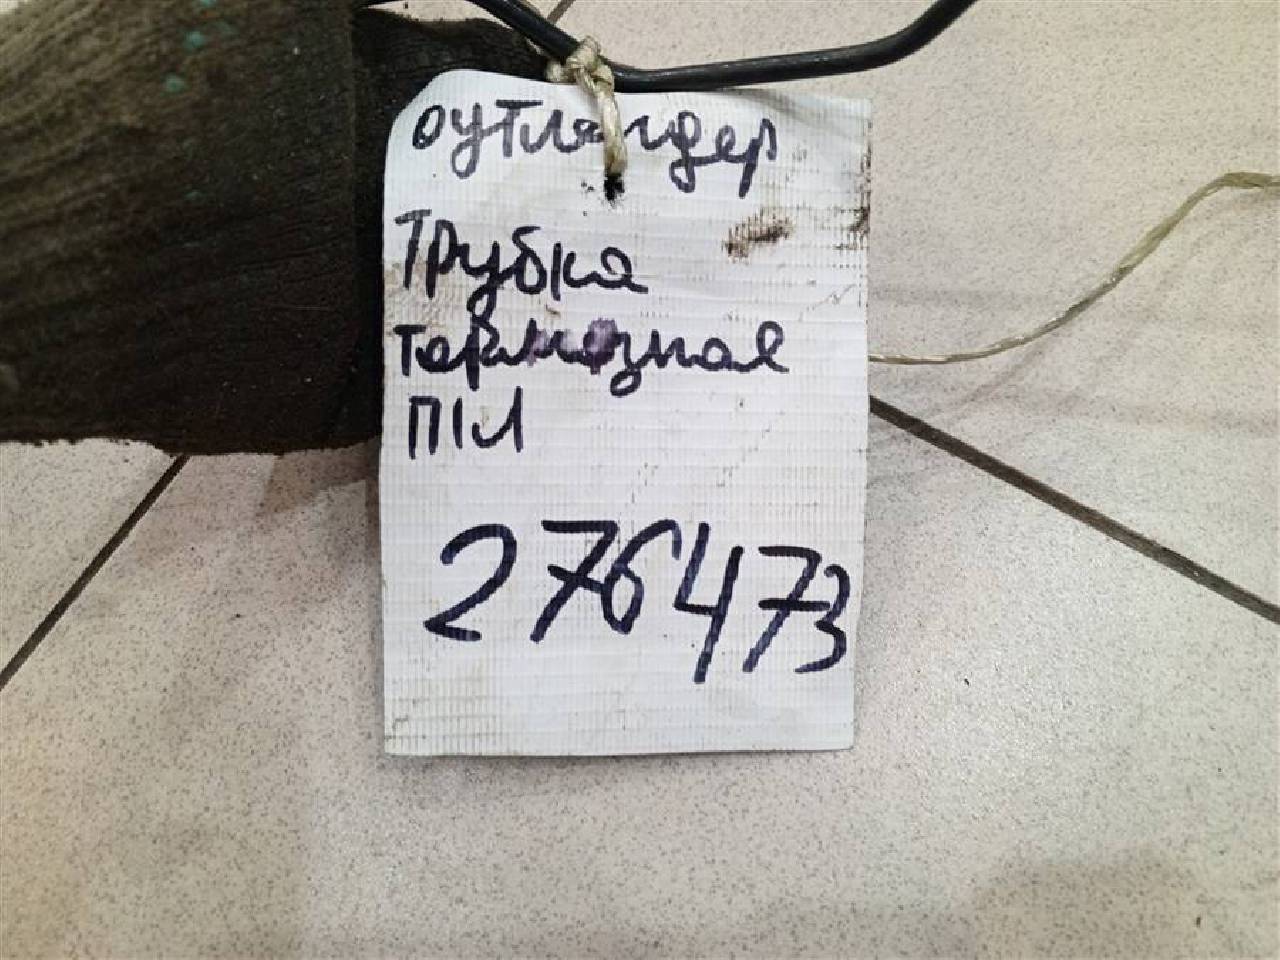 оутлендер
Трубка
тормозная
П/Л
276473